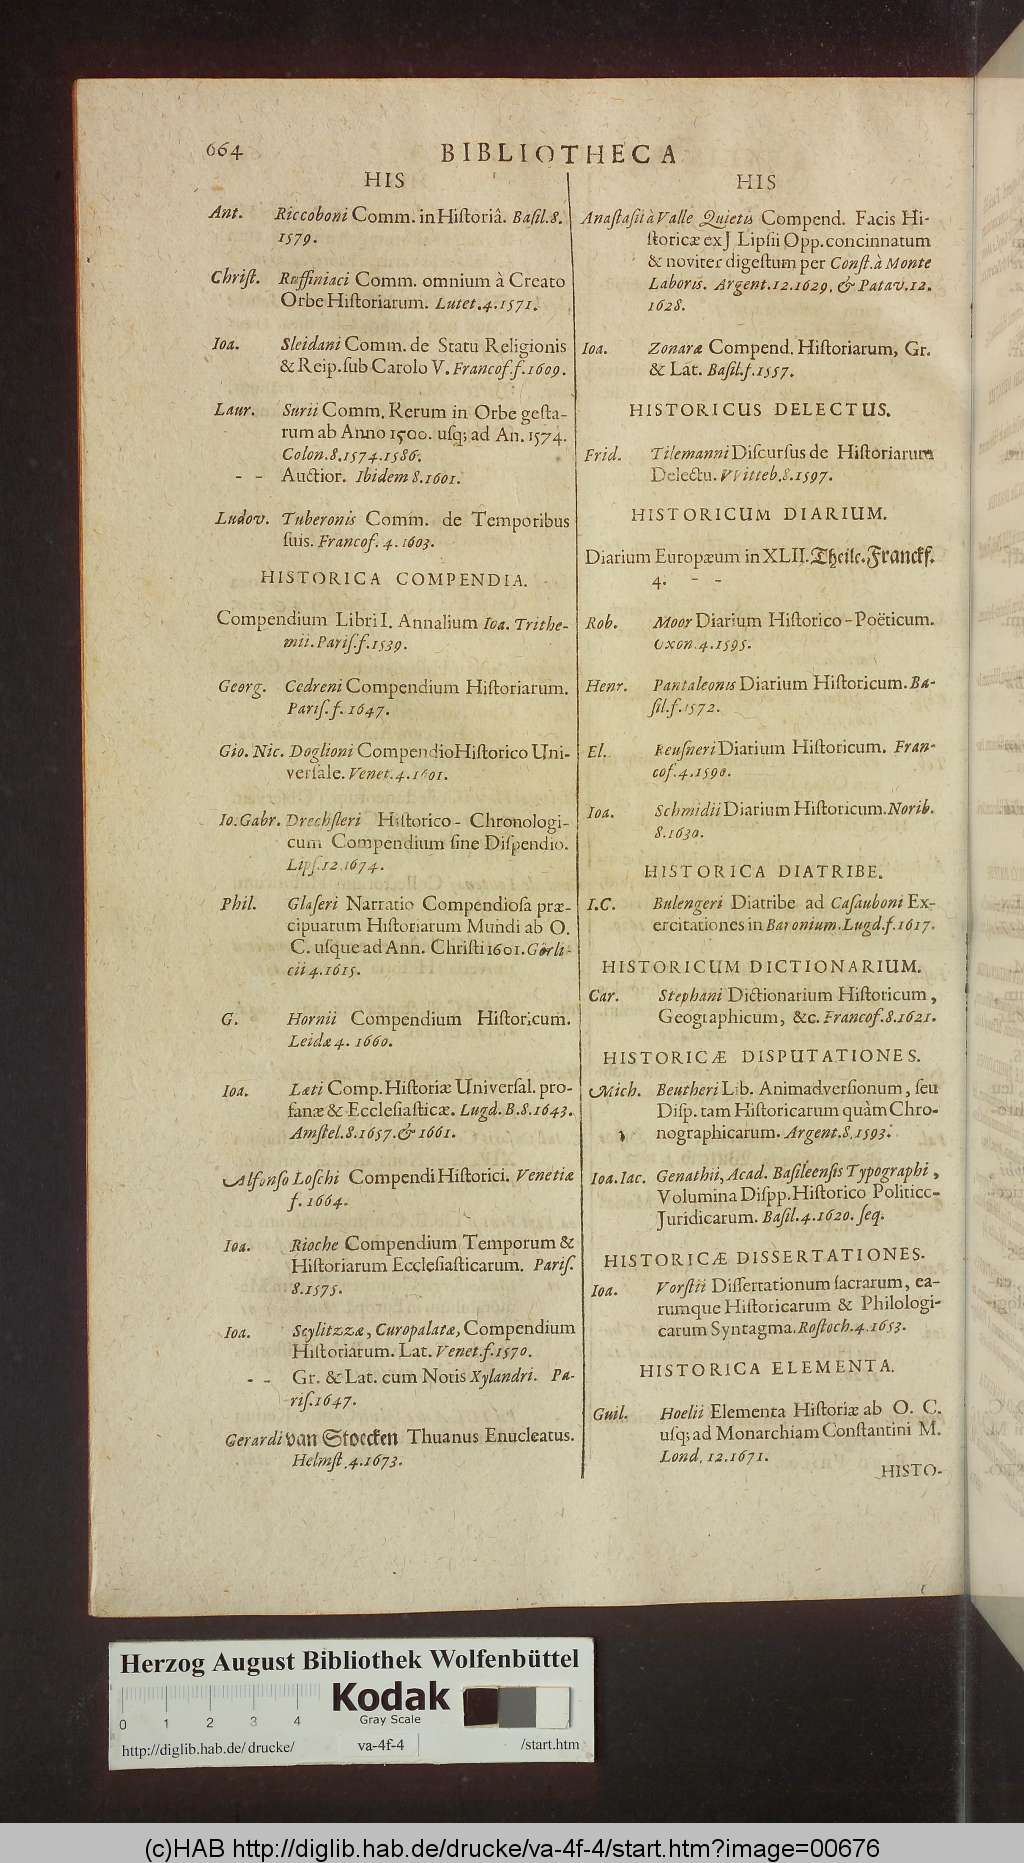 664
BIBLIOTHECA
HIS
Ant. Riccoboni Comm. in Historiâ. Basil. 8.
1579.
Christ. Ruffiniaci Comm. omnium à Creato
Orbe Historiarum. Lutet. 4. 1571.
Ioa. Sleidani Comm. de Statu Religionis
& Reip. sub Carolo V. Francof. f. 1609.
Laur. Surii Comm. Rerum in Orbe gesta-
rum ab Anno 1500. usq; ad An. 1574.
Colon. 8. 1574. 1586.
- - Auctior. Ibidem 8. 1601.
Ludov. Tuberonis Comm. de Temporibus
suis. Francof. 4. 1603.
HISTORICA COMPENDIA.
Compendium Libri I. Annalium Ioa. Trithe-
mii. Paris. f. 1539.
Georg. Cedreni Compendium Historiarum.
Paris. f. 1647.
Gio. Nic. Doglioni Compendio Historico Uni-
versale. Venet. 4. 1601.
Io. Gabr. Drechsleri Historico - Chronologi-
cum Compendium sine Dispendio.
Lips. 12. 1674.
Phil. Glaseri Narratio Compendiosa præ-
cipuarum Historiarum Mundi ab O.
C. usque ad Ann. Christi 1601. Görli-
cii 4. 1615.
G. Hornii Compendium Historicum.
Leidæ 4. 1660.
Ioa. Læti Comp. Historiæ Universal. pro-
fanæ & Ecclesiasticæ. Lugd. B. 8. 1643.
Amstel. 8. 1657. & 1661.
Alfonso Loschi Compendi Historici. Venetiæ
f. 1664.
Ioa. Rioche Compendium Temporum &
Historiarum Ecclesiasticarum. Paris.
8. 1575.
Ioa. Scylitzzæ, Curopalatæ, Compendium
Historiarum. Lat. Venet. f. 1570.
- - Gr. & Lat. cum Notis Xylandri. Pa-
ris. 1647.
Gerardi van Stoecken Thuanus Enucleatus.
Helmst. 4. 1673.
HIS
Anastasii à Valle Quietis Compend. Facis Hi-
storicæ ex J Lipsii Opp. concinnatum
& noviter digestum per Const. à Monte
Laboris. Argent. 12. 1629. & Patav. 12.
1628.
Ioa. Zonaræ Compend. Historiarum, Gr.
& Lat. Basil. f. 1557.
HISTORICUS DELECTUS.
Frid. Tilemanni Discursus de Historiarum
Delectu. VVitteb. 8. 1597.
HISTORICUM DIARIUM.
Diarium Europæum in XLII. Theile. Franckf.
4. - -
Rob. Moor Diarium Historico - Poëticum.
Oxon. 4. 1595.
Henr. Pantaleonis Diarium Historicum. Ba-
sil. f. 1572.
El. Reusneri Diarium Historicum. Fran-
cof. 4. 1590.
Ioa. Schmidii Diarium Historicum. Norib.
8. 1630.
HISTORICA DIATRIBE.
I. C. Bulengeri Diatribe ad Casauboni Ex-
ercitationes in Baronium. Lugd. f. 1617.
HISTORICUM DICTIONARIUM.
Car. Stephani Dictionarium Historicum,
Geographicum, &c. Francof. 8. 1621.
HISTORICÆ DISPUTATIONES.
Mich. Beutheri Lib. Animadversionum, seu
Disp. tam Historicarum quàm Chro-
nographicarum. Argent. 8. 1593.
Ioa. Iac. Genathii, Acad. Basileensis Typographi,
Volumina Dispp. Historico Politico-
Juridicarum. Basil. 4. 1620. seq.
HISTORICÆ DISSERTATIONES.
Ioa. Vorstii Dissertationum sacrarum, ea-
rumque Historicarum & Philologi-
carum Syntagma. Rostoch. 4. 1653.
HISTORICA ELEMENTA.
Guil. Hoelii Elementa Historiæ ab O. C.
usq; ad Monarchiam Constantini M.
Lond. 12. 1671.
HISTO-
Herzog August Bibliothek Wolfenbüttel
Kodak
Gray Scale
0 1 2 3 4
http://diglib.hab.de/drucke/ va-4f-4 /start.htm
(c)HAB http://diglib.hab.de/drucke/va-4f-4/start.htm?image=00676